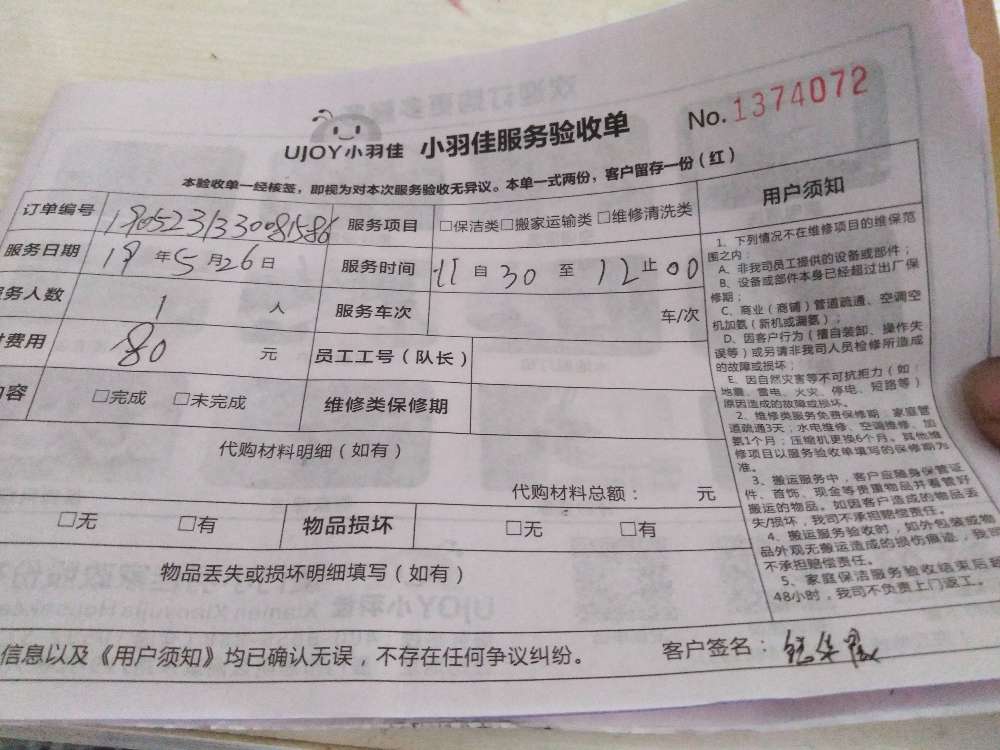 No.1374072
UJOY小羽佳 小羽佳服务验收单
本验收单一经核签，即视为对本次服务验收无异议。本单一式两份，客户留存一份（红）
订单编号 1905231330081586 服务项目 □保洁类□搬家运输类 □维修清洗类
服务日期 19 年 5 月 26 日 服务时间 11 自 30 至 12 止 00
务人数 1 人 服务车次 车/次
费用 80 元 员工工号（队长）
内容 □完成 □未完成 维修类保修期
代购材料明细（如有）
代购材料总额： 元
□无 □有 物品损坏 □无 □有
物品丢失或损坏明细填写（如有）
信息以及《用户须知》均已确认无误，不存在任何争议纠纷。
客户签名：
用户须知
1、下列情况不在维修项目的维保范
围之内：
A、非我司员工提供的设备或部件；
B、设备或部件本身已经超过出厂保
修期；
C、商业（商铺）管道疏通、空调空
机加氨（新机或漏氨）；
D、因客户行为（擅自装卸、操作失
误等）或另请非我司人员检修所造成
的故障或损坏；
E、因自然灾害等不可抗拒力（如：
地震、雷电、火灾、停电、短路等）
原因造成的故障或损坏。
2、维修类服务免费保修期：家庭管
道疏通3天；水电维修、空调维修、加
氨1个月；压缩机更换6个月。其他维
修项目以服务验收单填写的保修期为
准。
3、搬运服务中，客户应随身保管证
件、首饰、现金等贵重物品并看管好
搬运的物品。如因客户造成的物品丢
失/损坏，我司不承担赔偿责任。
4、搬运服务验收时，如外包装或物
品外观无搬运造成的损伤痕迹，我司
不承担赔偿责任。
5、家庭保洁服务验收结束后超
48小时，我司不负责上门返工。